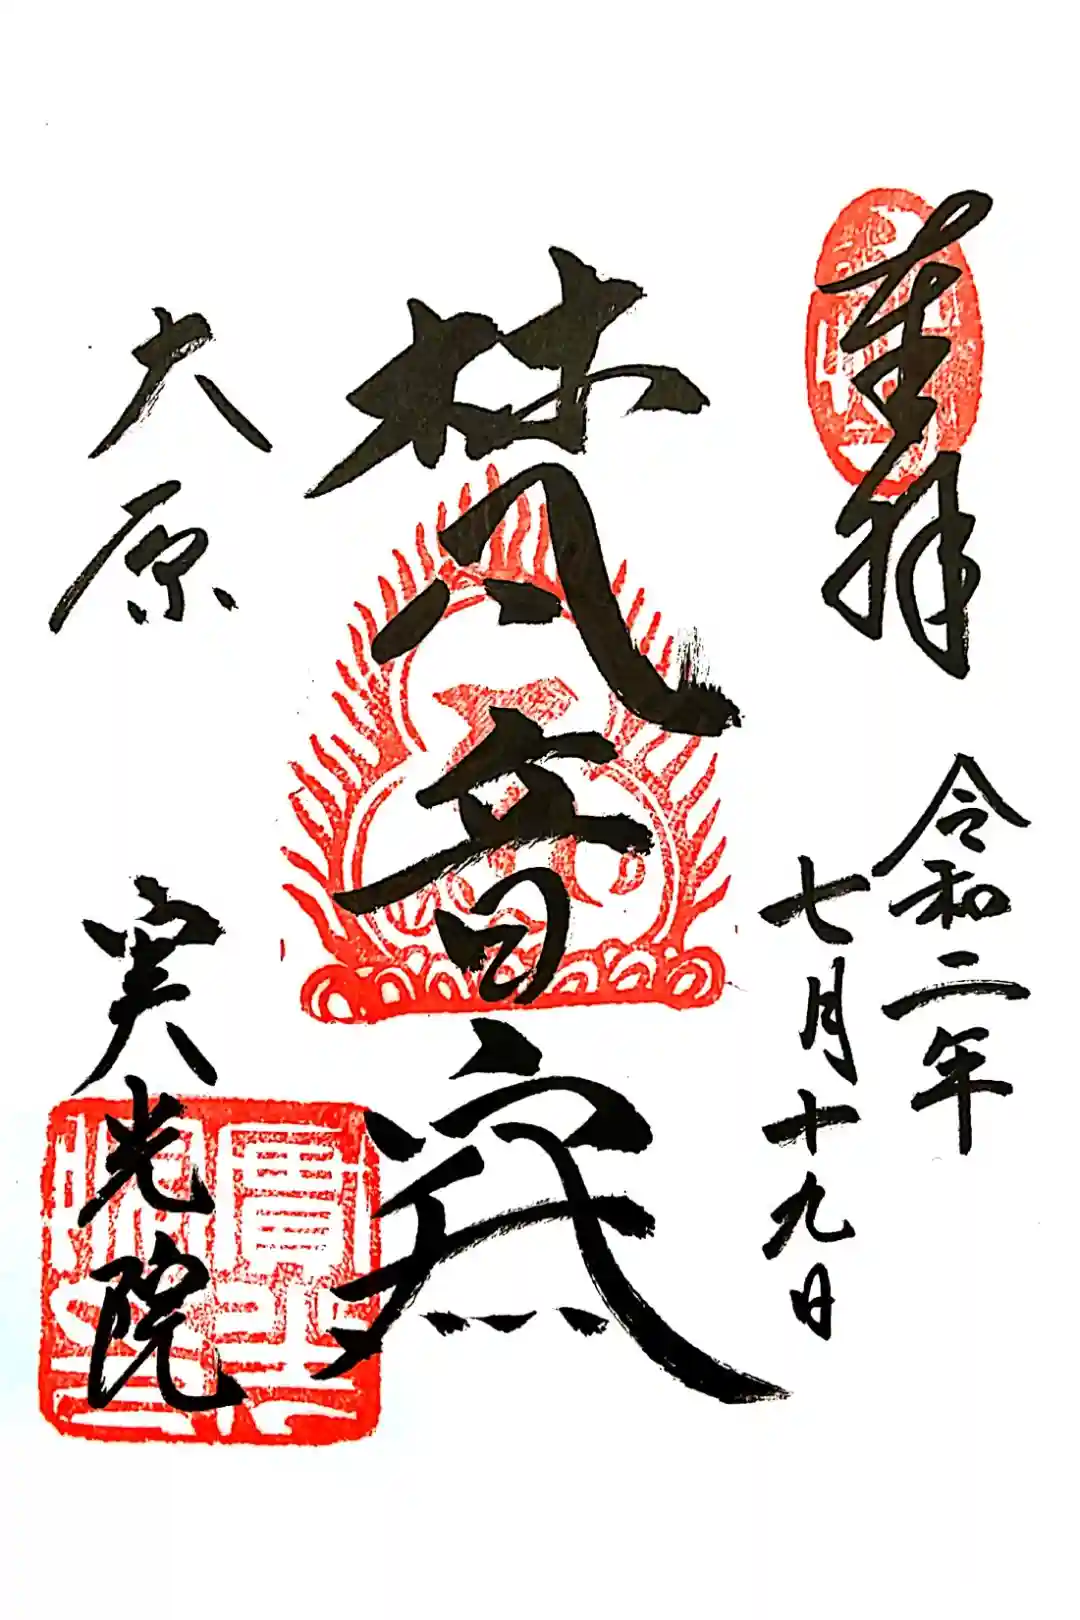 奉拝
令和二年
七月十九日
梵音密
大原
実光院